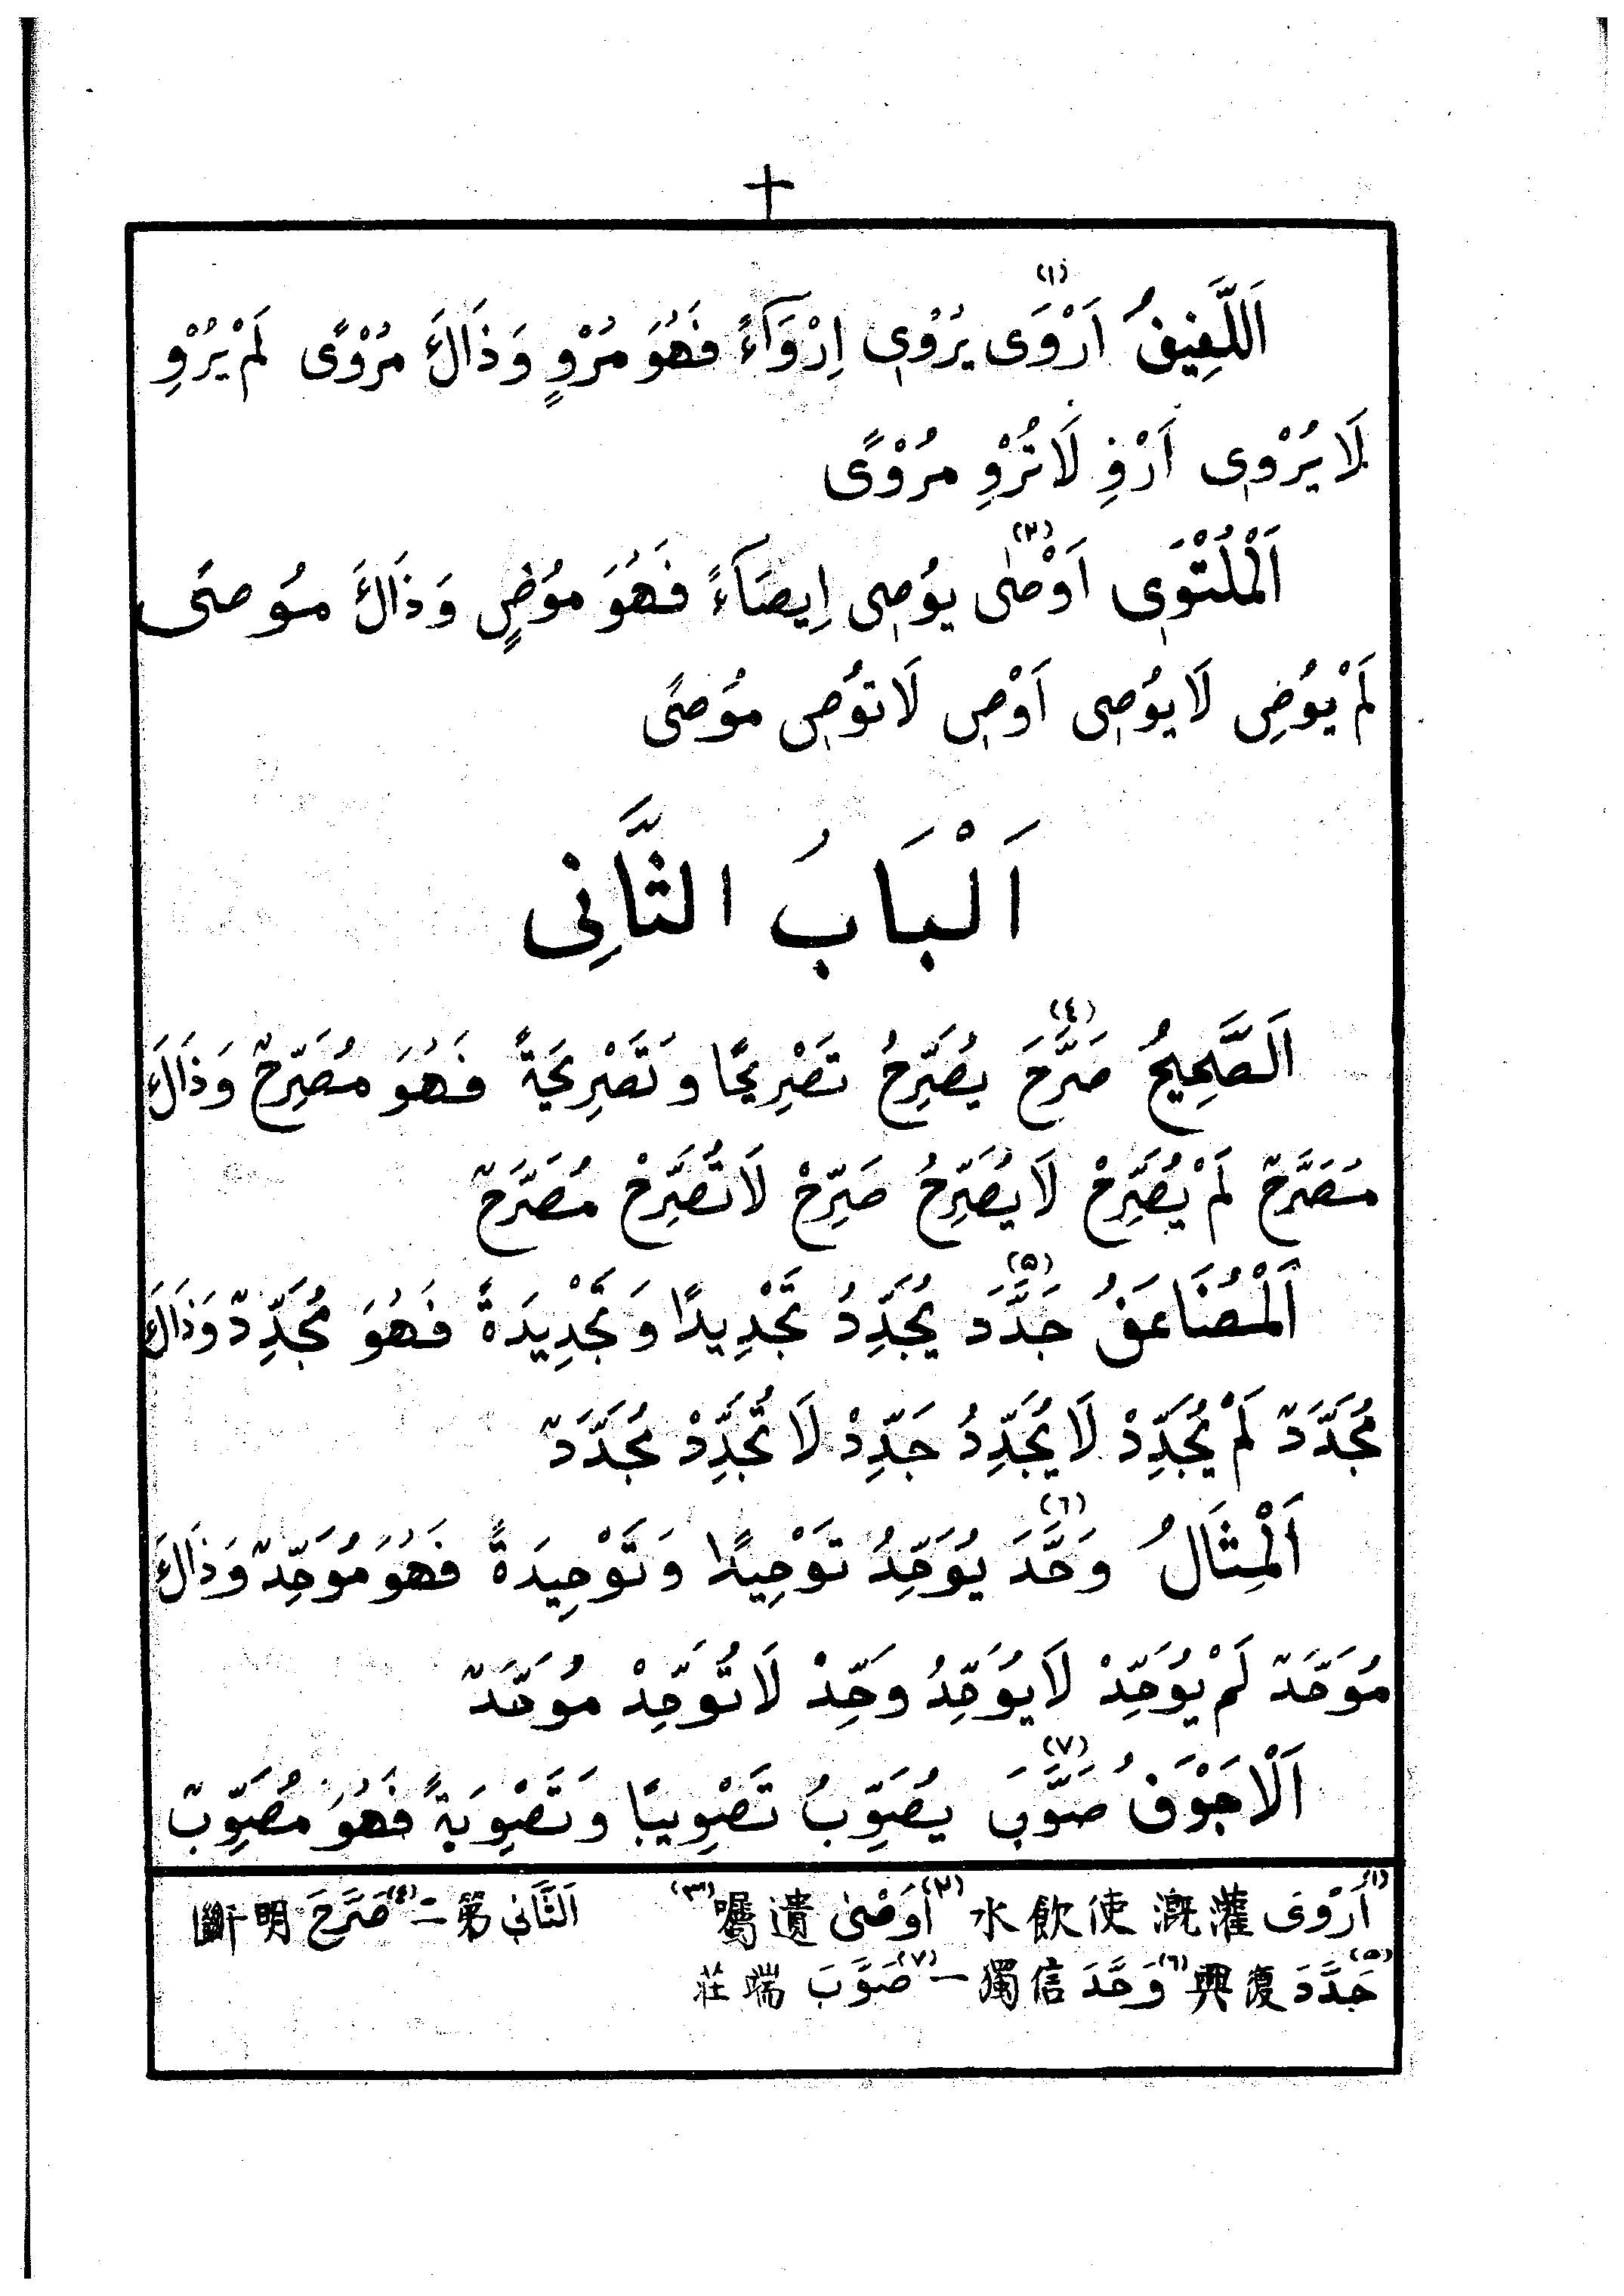 ١٠
اَللَّفِيفُ اَرْوَى(١) يُرْوِى اِرْوَآءً فَهُوَ مُرْوٍ وَذَالَكَ مُرْوًى لَمْ يُرْوِ
لَا يُرْوِى اَرْوِ لَا تُرْوِ مُرْوًى
اَلْمُلْتَوِى اَوْصٰى(٢) يُوصِى اِيصَآءً فَهُوَ مُوصٍ وَذَالَكَ مُوصًى
لَمْ يُوصِ لَا يُوصِى اَوْصِ لَا تُوصِ مُوصًى
اَلْبَابُ الثَّانِى
اَلصَّحِيحُ صَرَّحَ(٤) يُصَرِّحُ تَصْرِيحًا وَتَصْرِيحَةً فَهُوَ مُصَرِّحٌ وَذَالَكَ
مُصَرَّحٌ لَمْ يُصَرِّحْ لَا يُصَرِّحُ صَرِّحْ لَا تُصَرِّحْ مُصَرَّحٌ
اَلْمُضَاعَفُ جَدَّدَ(۵) يُجَدِّدُ تَجْدِيدًا وَتَجْدِيدَةً فَهُوَ مُجَدِّدٌ وَذَالَكَ
مُجَدَّدٌ لَمْ يُجَدِّدْ لَا يُجَدِّدُ جَدِّدْ لَا تُجَدِّدْ مُجَدَّدٌ
اَلْمِثَالُ وَحَّدَ(٦) يُوَحِّدُ تَوْحِيدًا وَتَوْحِيدَةً فَهُوَ مُوَحِّدٌ وَذَالَكَ
مُوَحَّدٌ لَمْ يُوَحِّدْ لَا يُوَحِّدُ وَحِّدْ لَا تُوَحِّدْ مُوَحَّدٌ
اَلْاَجْوَفُ صَوَّبَ(٧) يُصَوِّبُ تَصْوِيبًا وَتَصْوِبَةً فَهُوَ مُصَوِّبٌ
(١) اَرْوَى 灌溉使飲水 (٢) اَوْصٰى 遺囑 (٣) اَلثَّانِى 第二 (٤) صَرَّحَ 明斷
(۵) جَدَّدَ 復興 (٦) وَحَّدَ 信獨一 (٧) صَوَّبَ 端莊